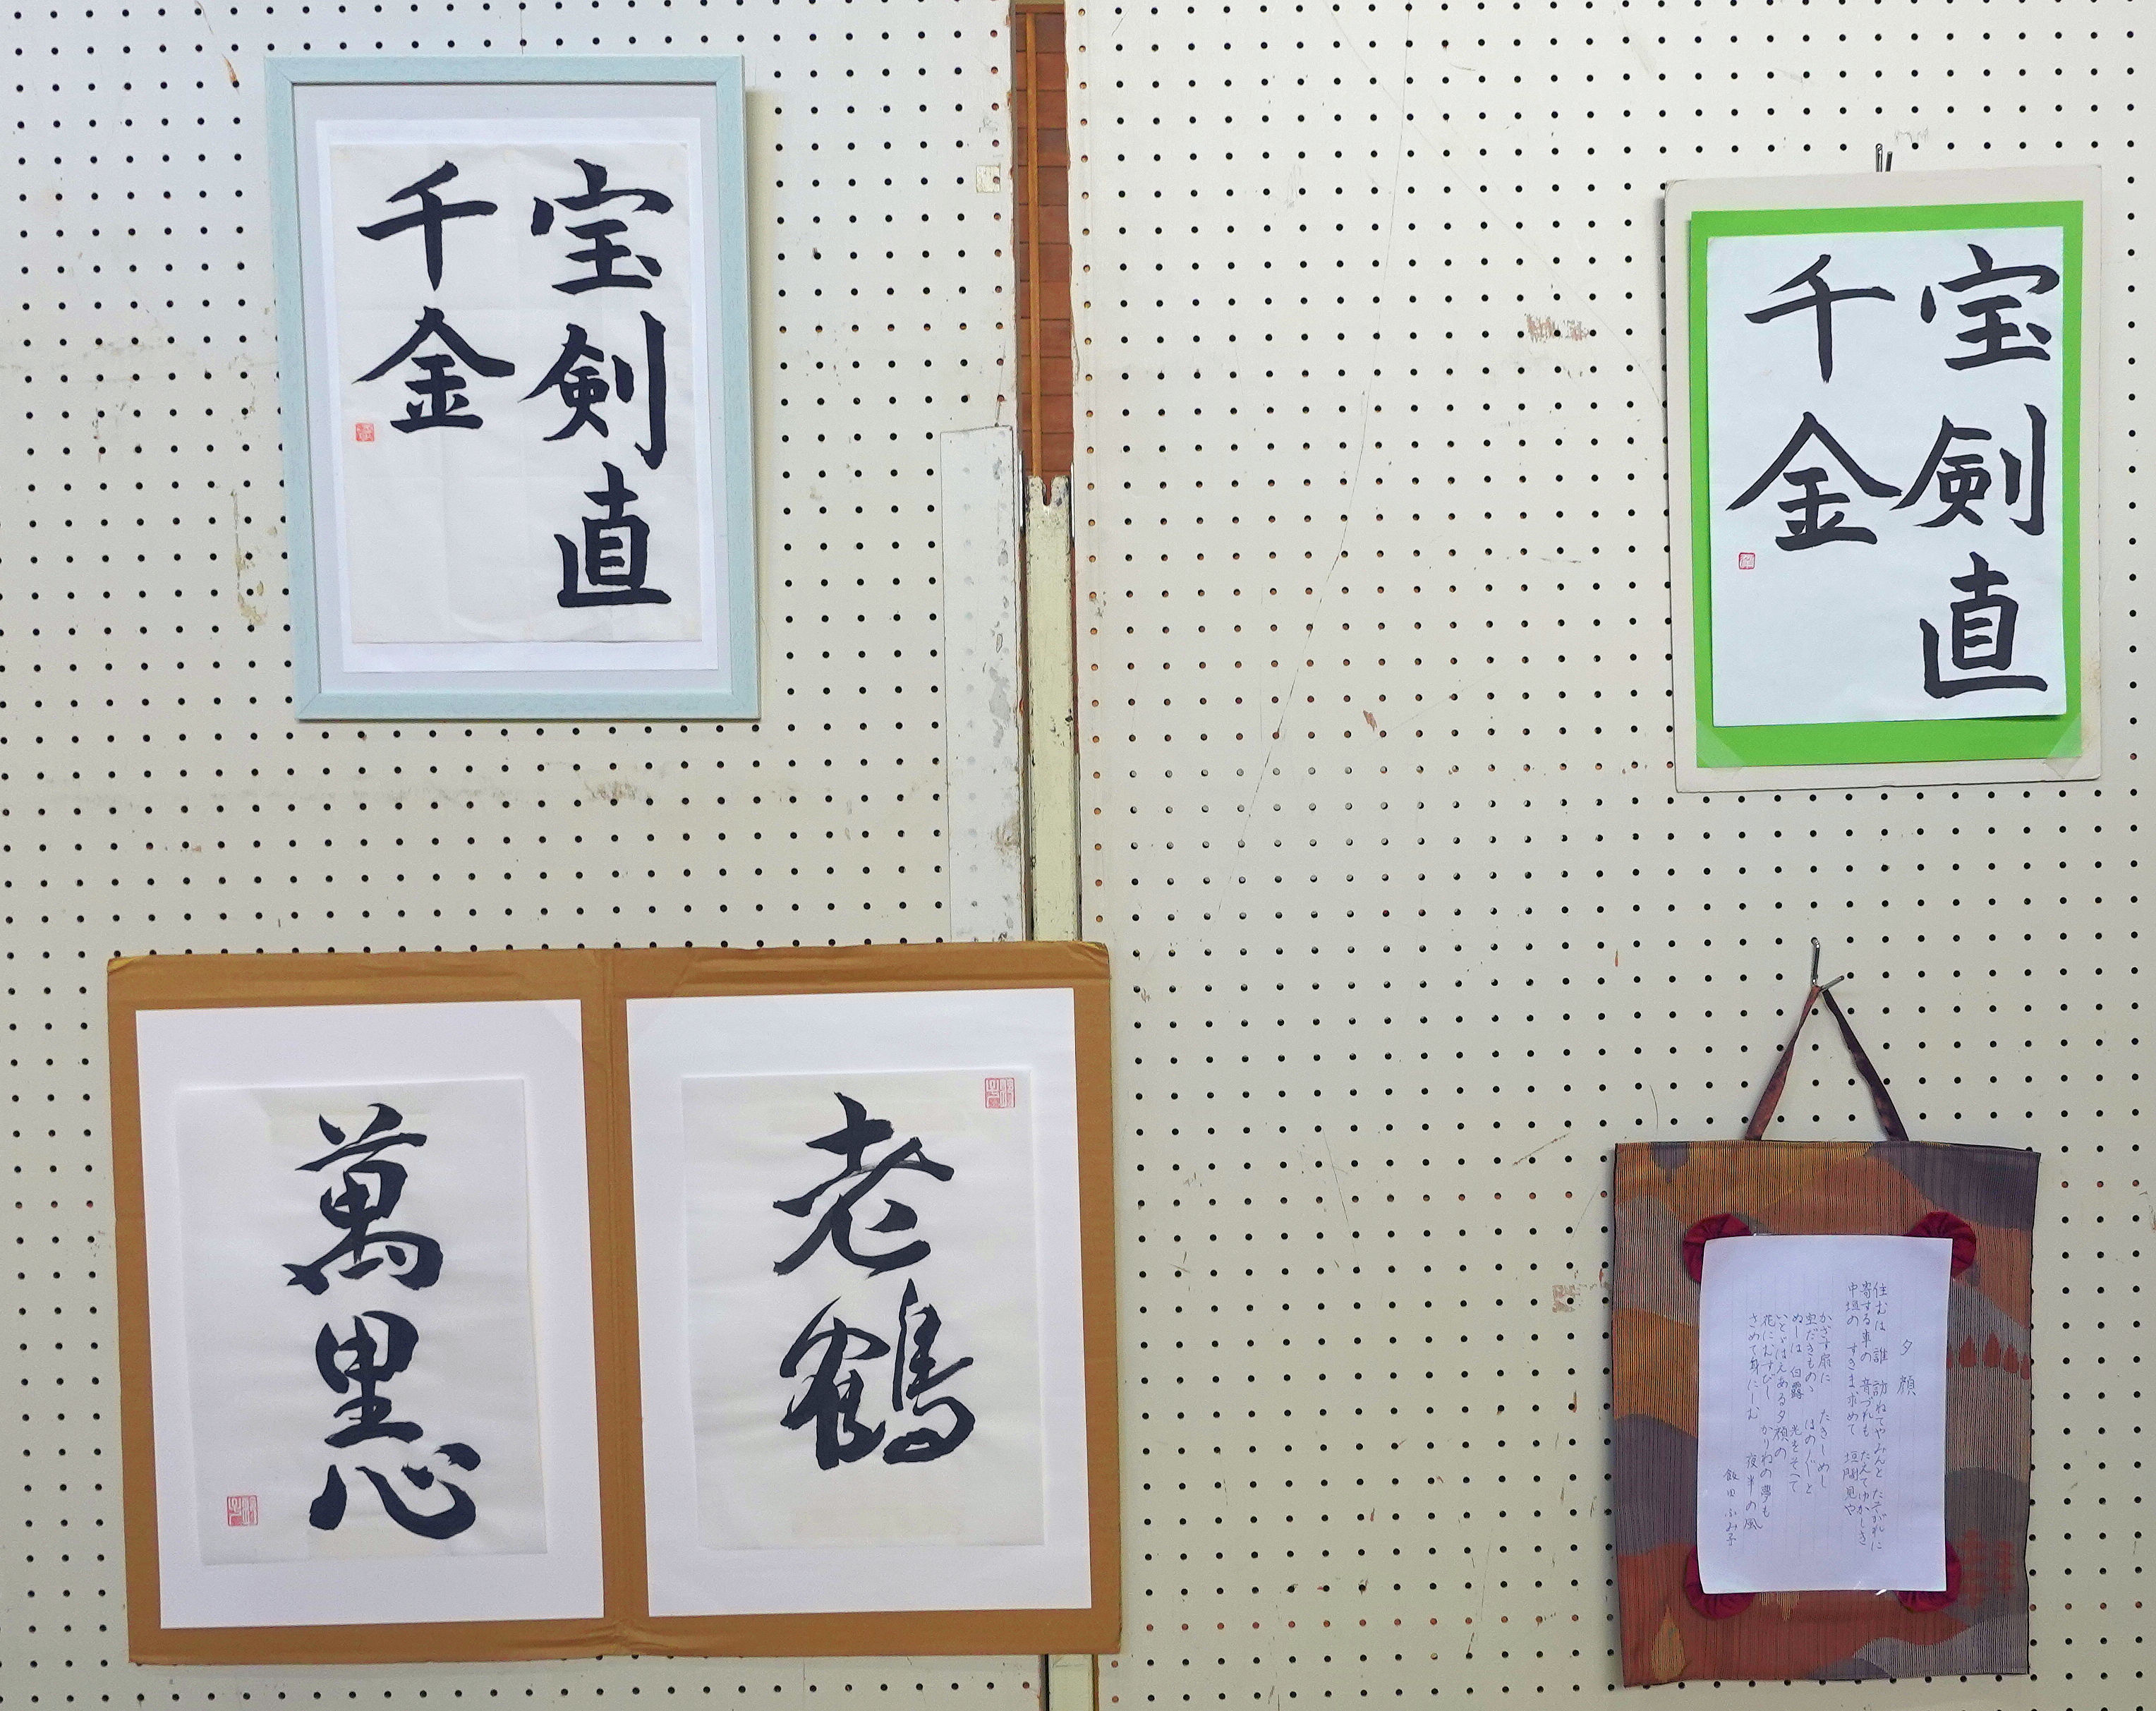 宝剣直
千金
宝剣直
千金
老鶴
萬里心
夕顔
住むは誰 訪ねてやみんと たそがれに
寄する車の 音づれも たえてゆかしき
中垣の すきま求めて 垣間見や
かざす扇に たきしめし
空だきものゝ ほのぐと
ぬしは 白露 光をそへて
いとゞはえある夕顔の
花にむすびし かりねの夢も
さめて身にしむ 夜半の風
飯田ふみ子